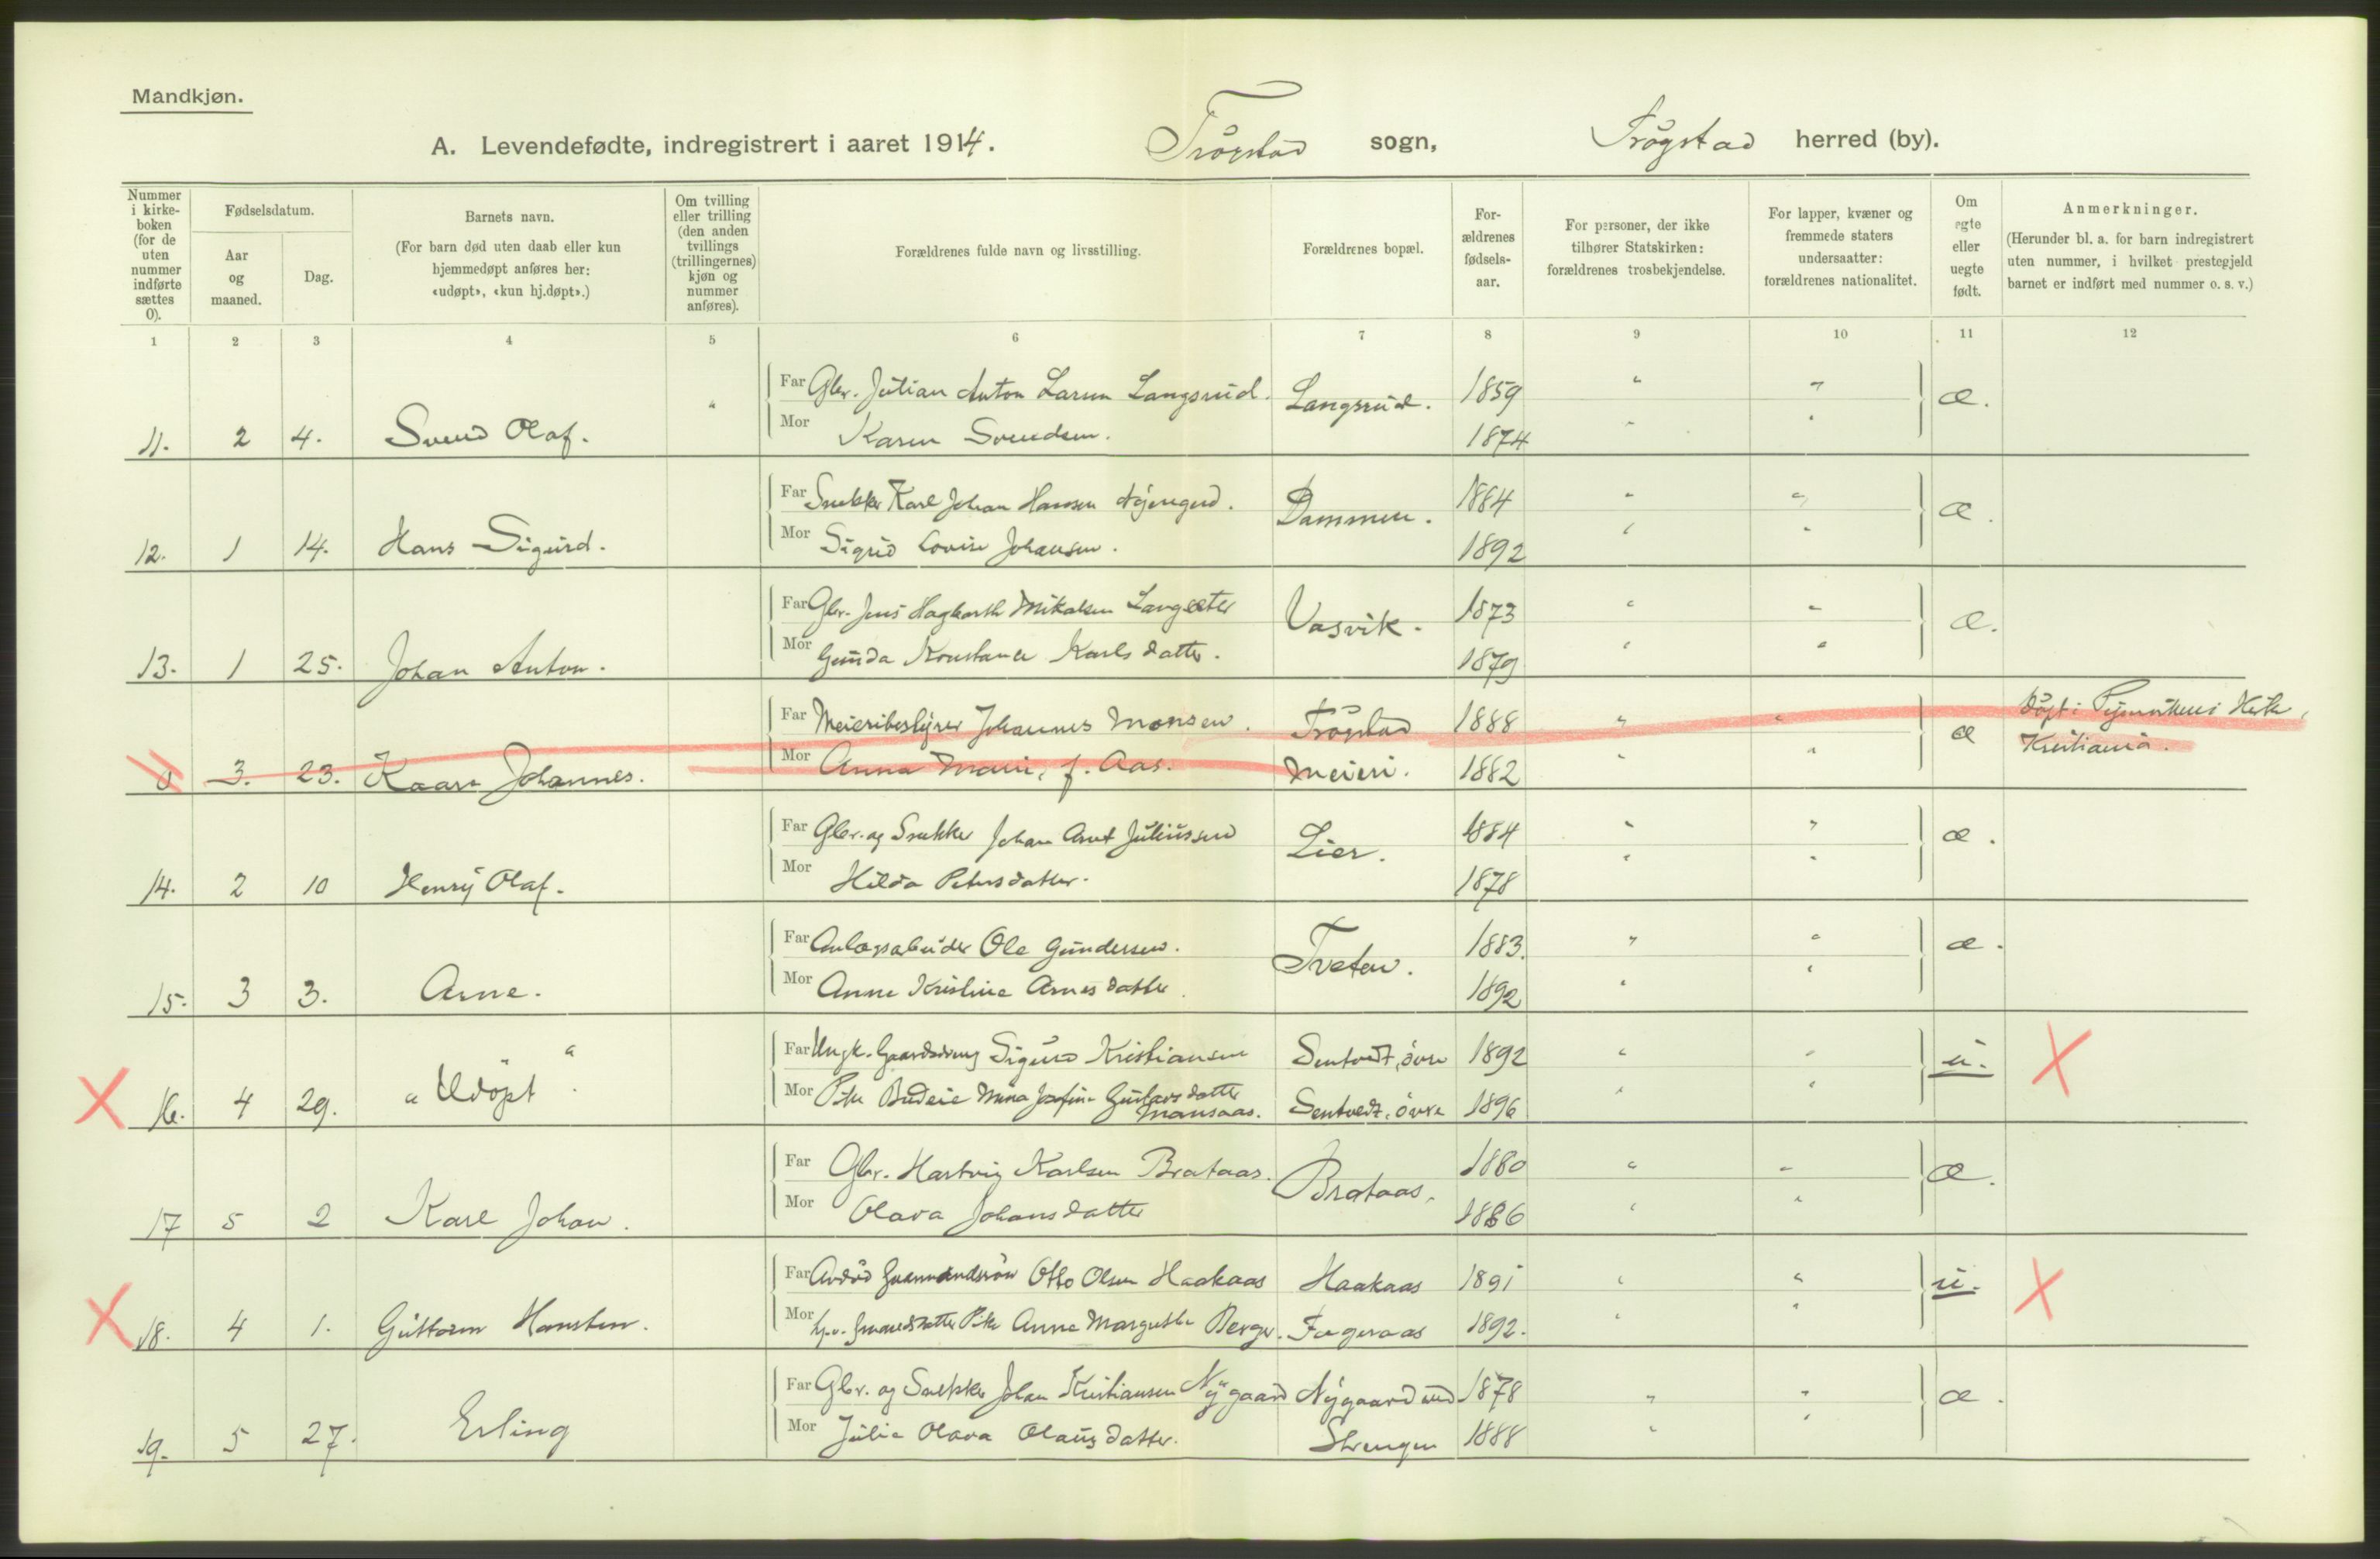 Mandkjøn.
A. Levendefødte, indregistrert i aaret 1914. Trøgstad sogn, Trøgstad herred (by).
Nummer i kirke-boken (for de uten nummer indførte sættes 0).
Fødselsdatum.
Aar og maaned.
Dag.
Barnets navn.
(For barn død uten daab eller kun hjemmedøpt anføres her: «udøpt», «kun hj.døpt».)
Om tvilling eller trilling (den anden tvillings (trillingernes) kjøn og nummer anføres).
Forældrenes fulde navn og livsstilling.
Forældrenes bopæl.
For-ældrenes fødsels-aar.
For personer, der ikke tilhører Statskirken: forældrenes trosbekjendelse.
For lapper, kvæner og fremmede staters undersaatter: forældrenes nationalitet.
Om egte eller uegte født.
Anmerkninger.
(Herunder bl. a. for barn indregistrert uten nummer, i hvilket prestegjeld barnet er indført med nummer o. s. v.)
1 2 3 4 5 6 7 8 9 10 11 12
Far Gbr. Julian Anton Larsen Langsrud. Langsrud. 1859 " " æ.
11. 2 4. Svend Olaf. " Mor Karen Svendsen. 1874 " "
Far Snekker Karl Johan Hansen Dammen. 1884 " " æ.
12. 1 14. Hans Sigurd. Mor Sigrid Lovise Johansen. 1892 " "
Far Gbr. Jens Hagbarth Mikalsen Langsæter Vasvik. 1873 " " æ.
13. 1 25. Johan Anton. Mor Gunda Konstance Karlsdatter. 1879 " "
Far Meieribestyrer Johannes Monsen. Trøgstad 1888 " " æ Døpt i Kirke,
0 3. 23. Kaare Johannes. Mor Anna Marie, f. Aas. Meieri. 1882 " " Kristiania.
Far Gbr. og Snekker Johan Arnt Juliussen Lier. 1884 " " æ.
14. 2 10 Henry Olaf. Mor Hilda Petersdatter. 1878 " "
Far Anlægsarbeider Ole Gundersen. Tveten. 1883. " " æ.
15. 3 3. Arne. Mor Anne Kristine Arnesdatter. 1892 " "
Far Ungk. Gaardsdreng Sigurd Kristiansen Sentvedt, øvre 1892 " " u. X
X 16. 4 29. "Udøpt". Mor Pike Budeie Mina Josefine Gustavsdatter Sentvedt, øvre 1896 " "
Monsaas.
Far Gbr. Hartvig Karlsen Brataas. Brataas. 1880 " " æ.
17 5 2 Karl Johan. Mor Olava Johansdatter 1886 " "
Far Otto Olsen Haakaas Haakaas 1891 " " u. X
X 18. 4 1. Guttorm Hansten. Mor Pike Anne Margrethe Berger. Fageraas 1892. " "
Far Gbr. og Snekker Johan Kristiansen Nygaard Nygaard und 1878 " " æ.
19. 5 27. Erling Mor Julie Olava Olausdatter. Strengen 1888 "